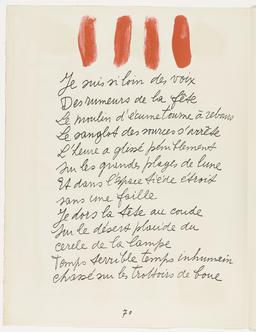 Je suis si loin des voix
Des rumeurs de la fête
Le moulin d'écume tourne à rebours
Le sanglot des sources s'arrête
L'heure a glissé péniblement
Sur les grandes plages de lune
Et dans l'espace tiède étroit
sans une faille
Je dors la tête au coude
Sur le désert placide du
cercle de la lampe
Temps terrible temps inhumain
chassé sur les trottoirs de boue
70